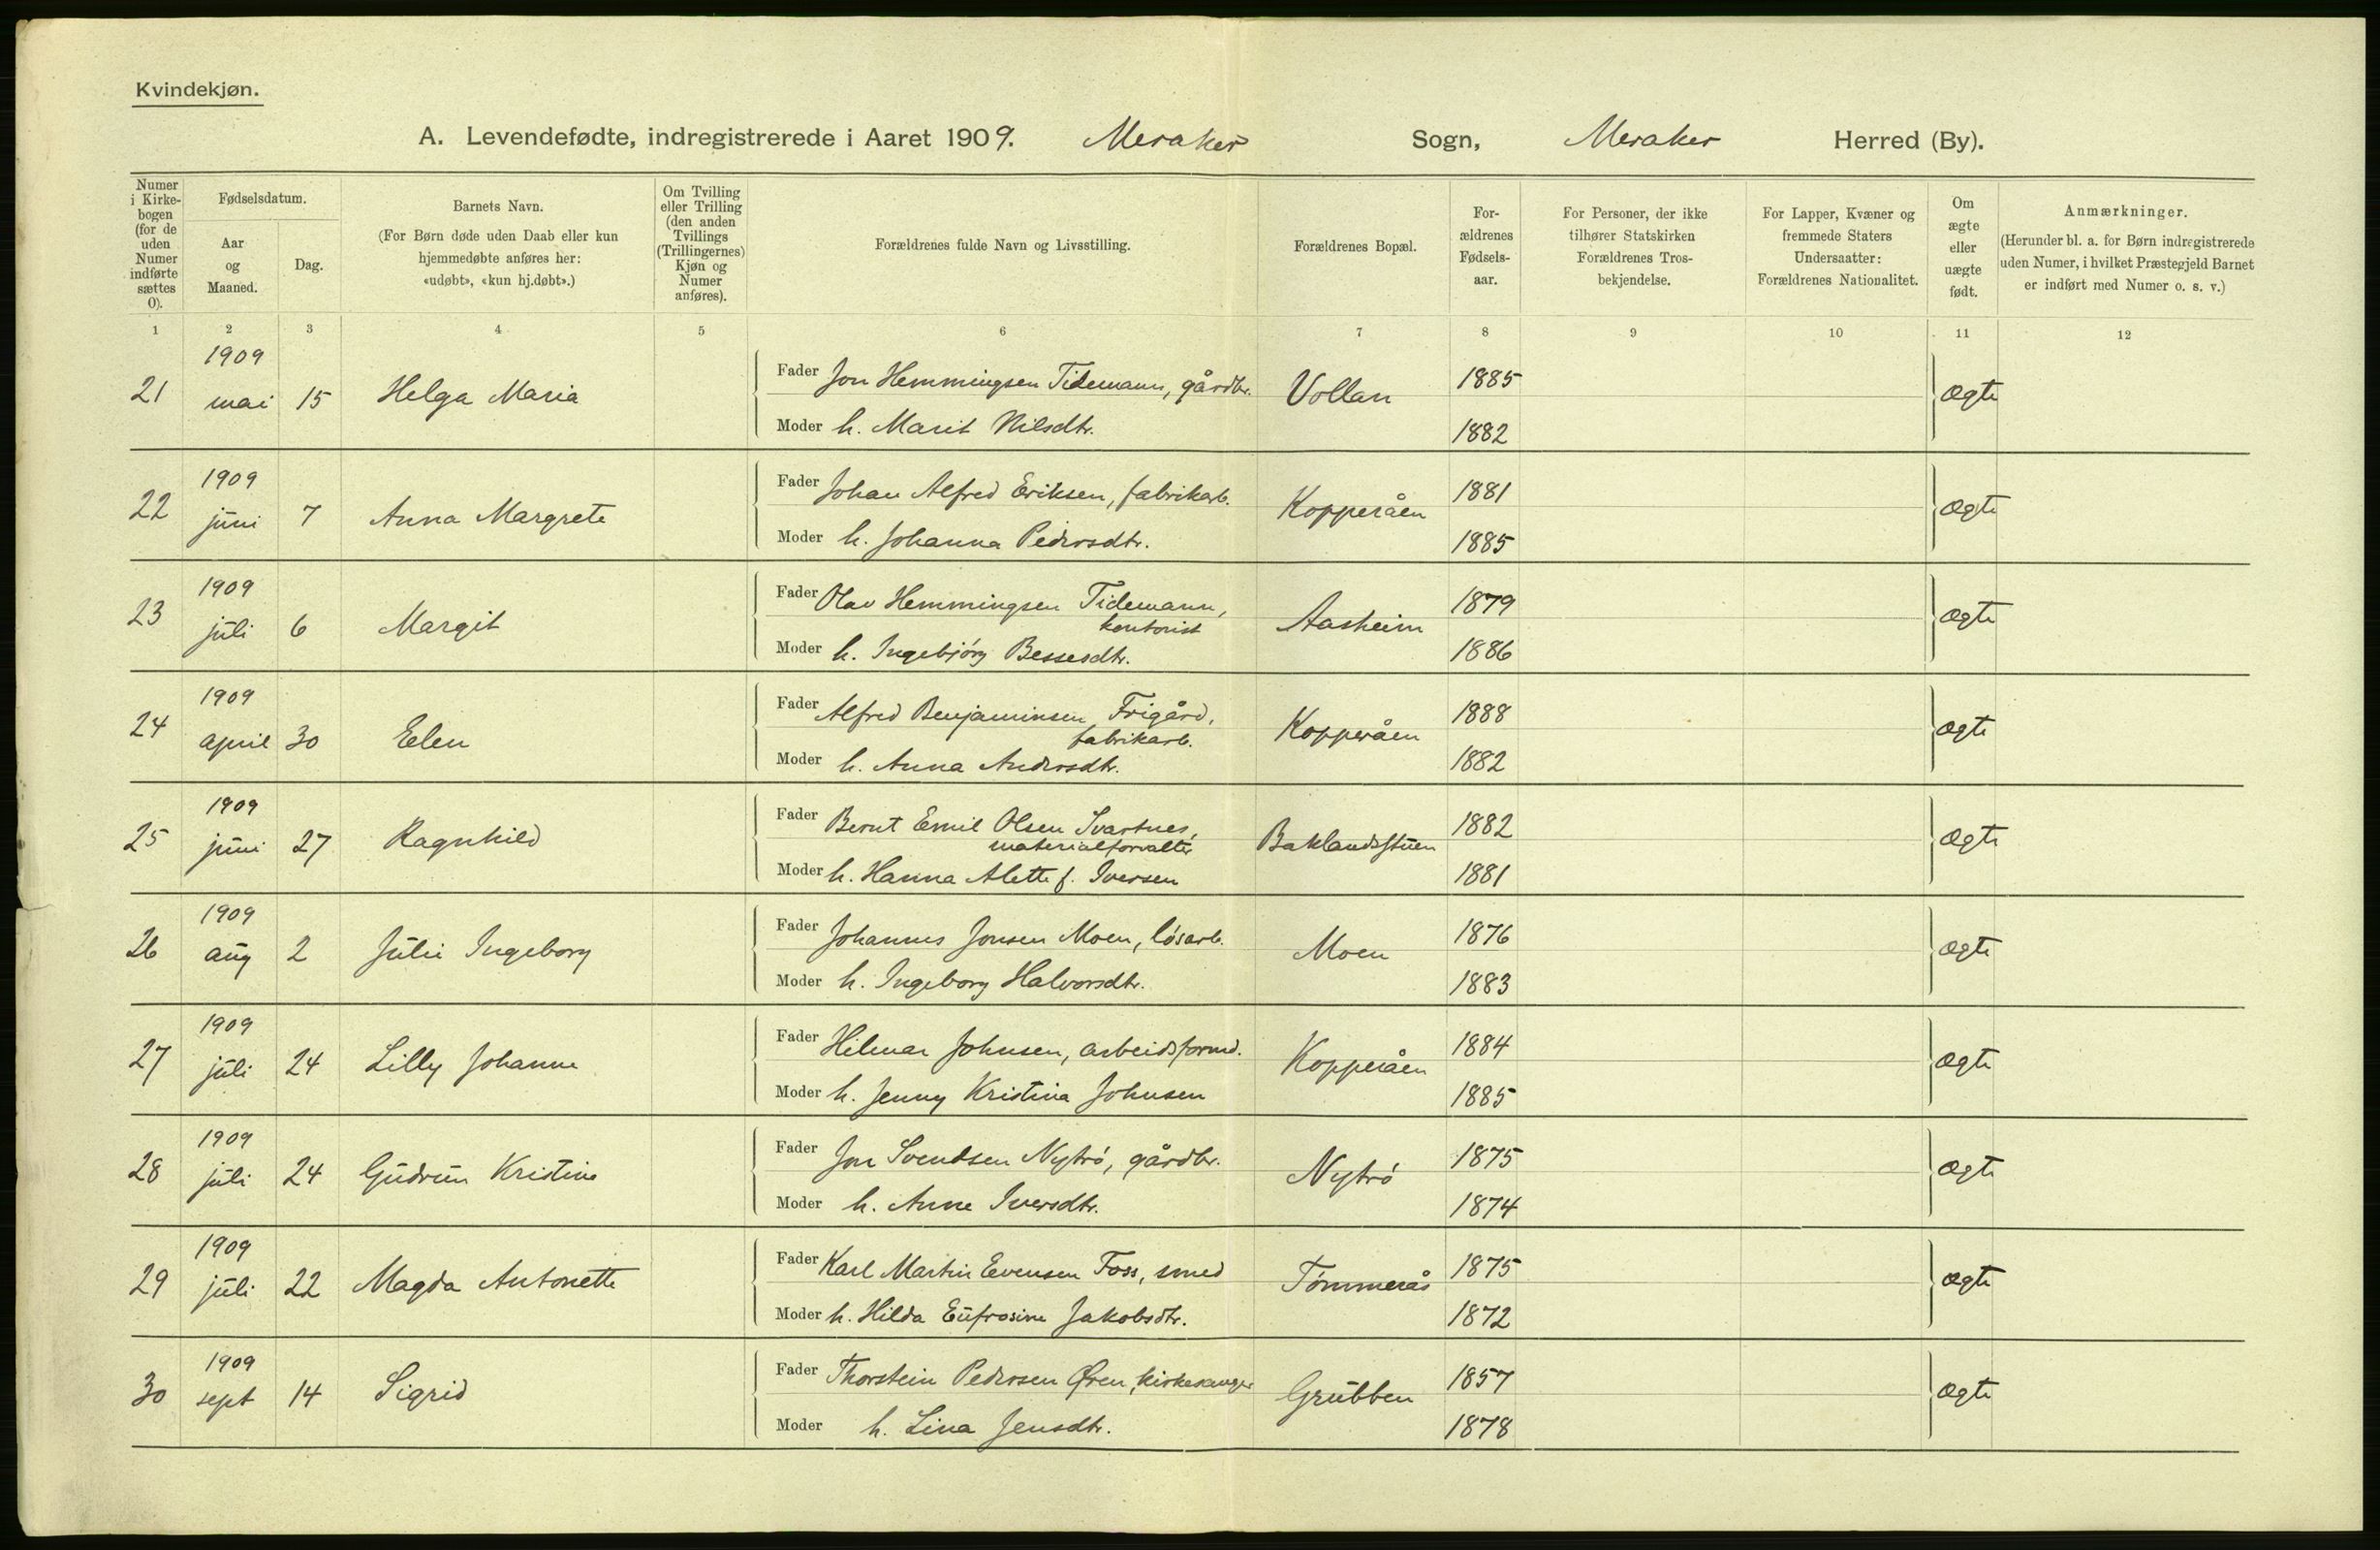 Kvindekjøn.
A. Levendefødte, indregistrerede i Aaret 1909. Meraker Sogn, Meraker Herred (By).
Numer i Kirke-bogen (for de uden Numer indførte sættes 0).
Fødselsdatum.
Aar og Maaned.
Dag.
Barnets Navn.
(For Børn døde uden Daab eller kun hjemmedøbte anføres her: «udøbt», «kun hj.døbt».)
Om Tvilling eller Trilling (den anden Tvillings (Trillingernes) Kjøn og Numer anføres).
Forældrenes fulde Navn og Livsstilling.
Forældrenes Bopæl.
For-ældrenes Fødsels-aar.
For Personer, der ikke tilhører Statskirken Forældrenes Tros-bekjendelse.
For Lapper, Kvæner og fremmede Staters Undersaatter: Forældrenes Nationalitet.
Om ægte eller uægte født.
Anmærkninger.
(Herunder bl. a. for Børn indregistrerede uden Numer, i hvilket Præstegjeld Barnet er indført med Numer o. s. v.)
1 2 3 4 5 6 7 8 9 10 11 12
21 1909 mai 15 Helga Maria Fader Jon Hemmingsen Tidemann, gårdbr. Vollan 1885 ægte
Moder h. Marit Nilsdtr. 1882
22 1909 juni 7 Anna Margrete Fader Johan Alfred Eriksen, fabrikarb. Kopperåen 1881 ægte
Moder h. Johanna Pedersdtr. 1885
23 1909 juli 6 Margit Fader Olav Hemmingsen Tidemann, kontorist Aasheim 1879 ægte
Moder h. Ingebjörg Bessesdtr. 1886
24 1909 april 30 Elen Fader Alfred Benjaminsen Frigård, fabrikarb. Kopperåen 1888 ægte
Moder h. Anna Andersdtr. 1882
25 1909 juni 27 Ragnhild Fader Bernt Emil Olsen Svartnes, materialforvalter Baklandsstuen 1882 ægte
Moder h. Hanna Alette f. Iversen 1881
26 1909 aug 2 Julie Ingeborg Fader Johannes Jonsen Moen, lösarb. Moen 1876 ægte
Moder h. Ingeborg Halvorsdtr. 1883
27 1909 juli 24 Lilly Johanne Fader Hilmar Johnsen, arbeidsformd. Kopperåen 1884 ægte
Moder h. Jenny Kristina Johnsen 1885
28 1909 juli 24 Gudrun Kristine Fader Jon Svendsen Nytrö, gårdbr. Nytrö 1875 ægte
Moder h. Anne Iversdtr. 1874
29 1909 juli 22 Magda Antonette Fader Karl Martin Evensen Foss, smed Tömmerås 1875 ægte
Moder h. Hilda Eufrosine Jakobsdtr. 1872
30 1909 sept 14 Sigrid Fader Thorstein Pedersen Øren, kirkesanger Grubben 1857 ægte
Moder h. Lina Jensdtr. 1878